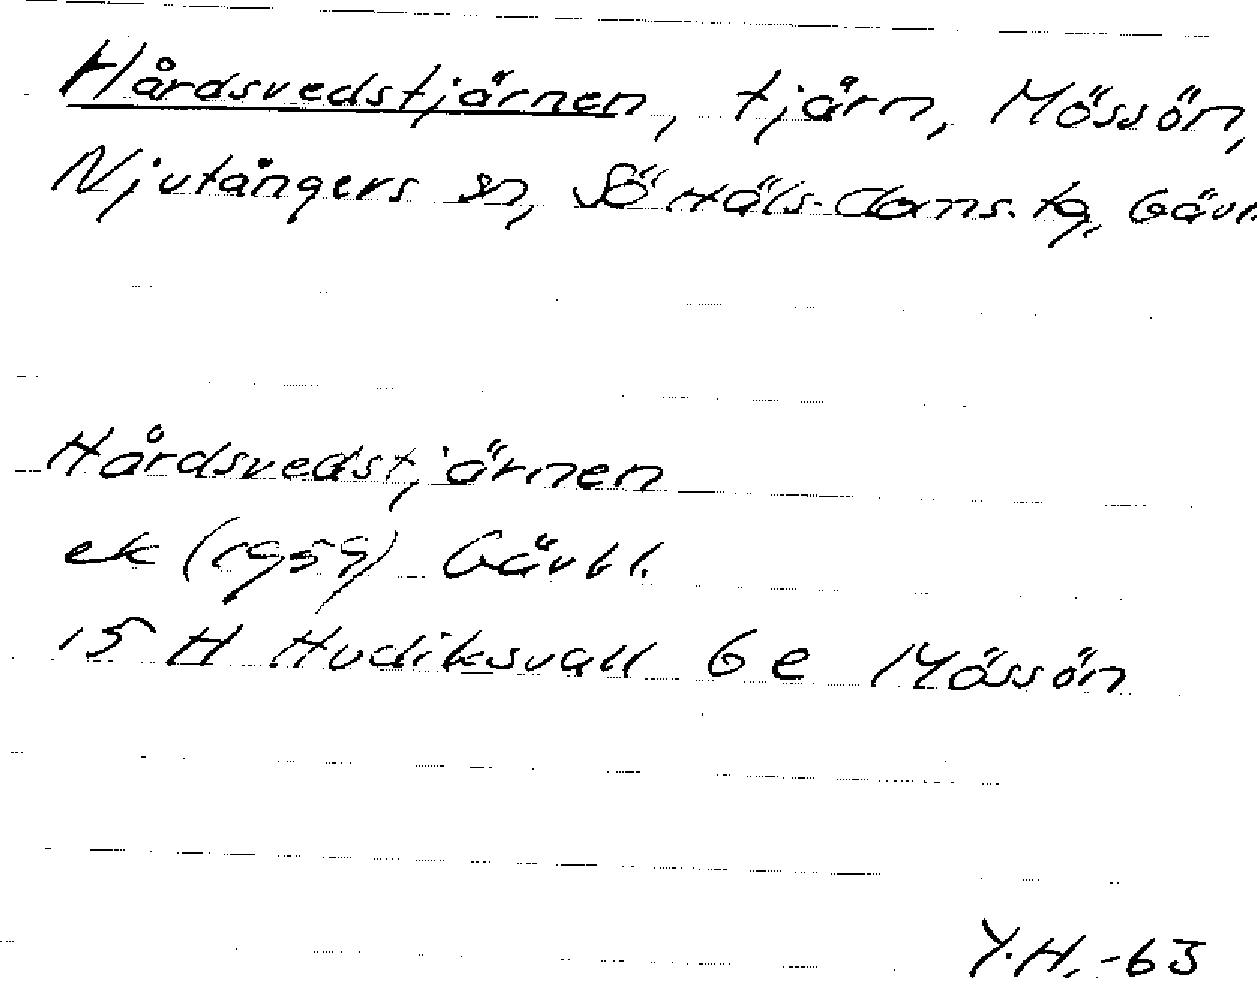 Hårdsvedstjärnen, tjärn, Mössön,
Njutångers sn, Sö Häls. doms. tg, Gävl.
Hårdsvedstjärnen
ek (1959) Gävll.
15 H Hudiksvall 6 e Mössön
Y.H. -63